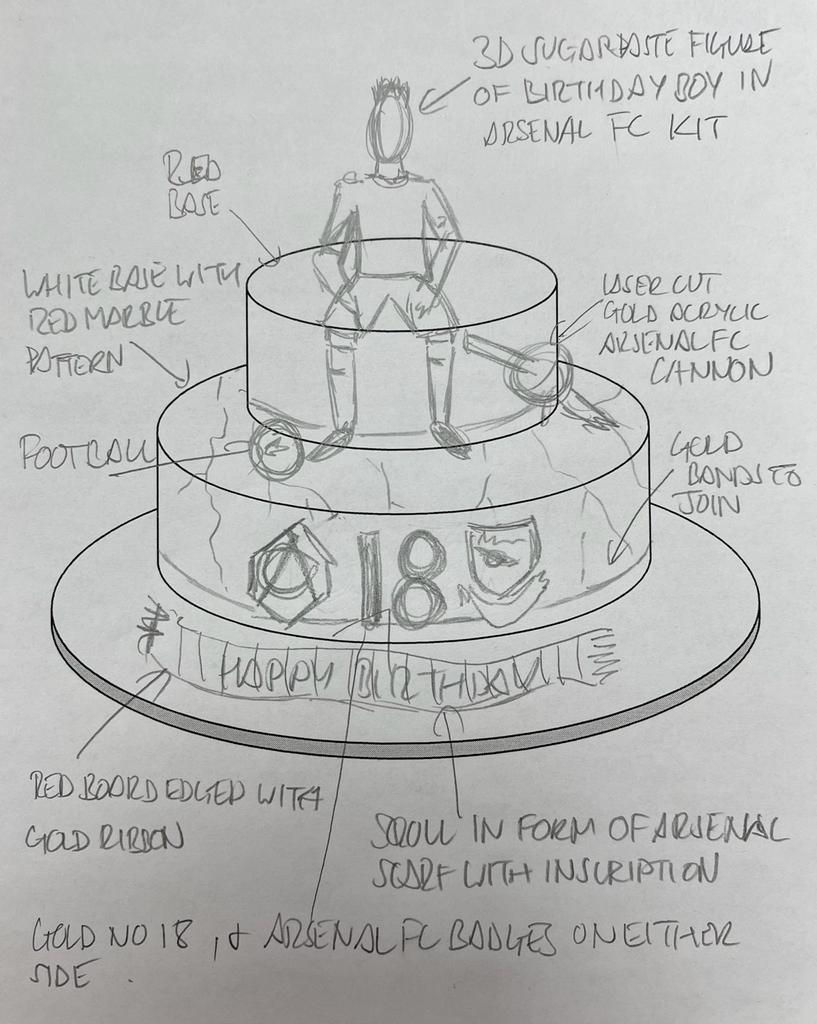 3D SUGARPASTE FIGURE
OF BIRTHDAY BOY IN
ARSENAL FC KIT
RED
BASE
WHITE BASE WITH
RED MARBLE
PATTERN
LASER CUT
GOLD ACRYLIC
ARSENAL FC
CANNON
FOOTBALL
GOLD
BANDS TO
JOIN
A 18
HAPPY BIRTHDAY
RED BOARD EDGED WITH
GOLD RIBBON
SCROLL IN FORM OF ARSENAL
SCARF WITH INSCRIPTION
GOLD NO 18, & ARSENAL FC BADGES ON EITHER
SIDE.